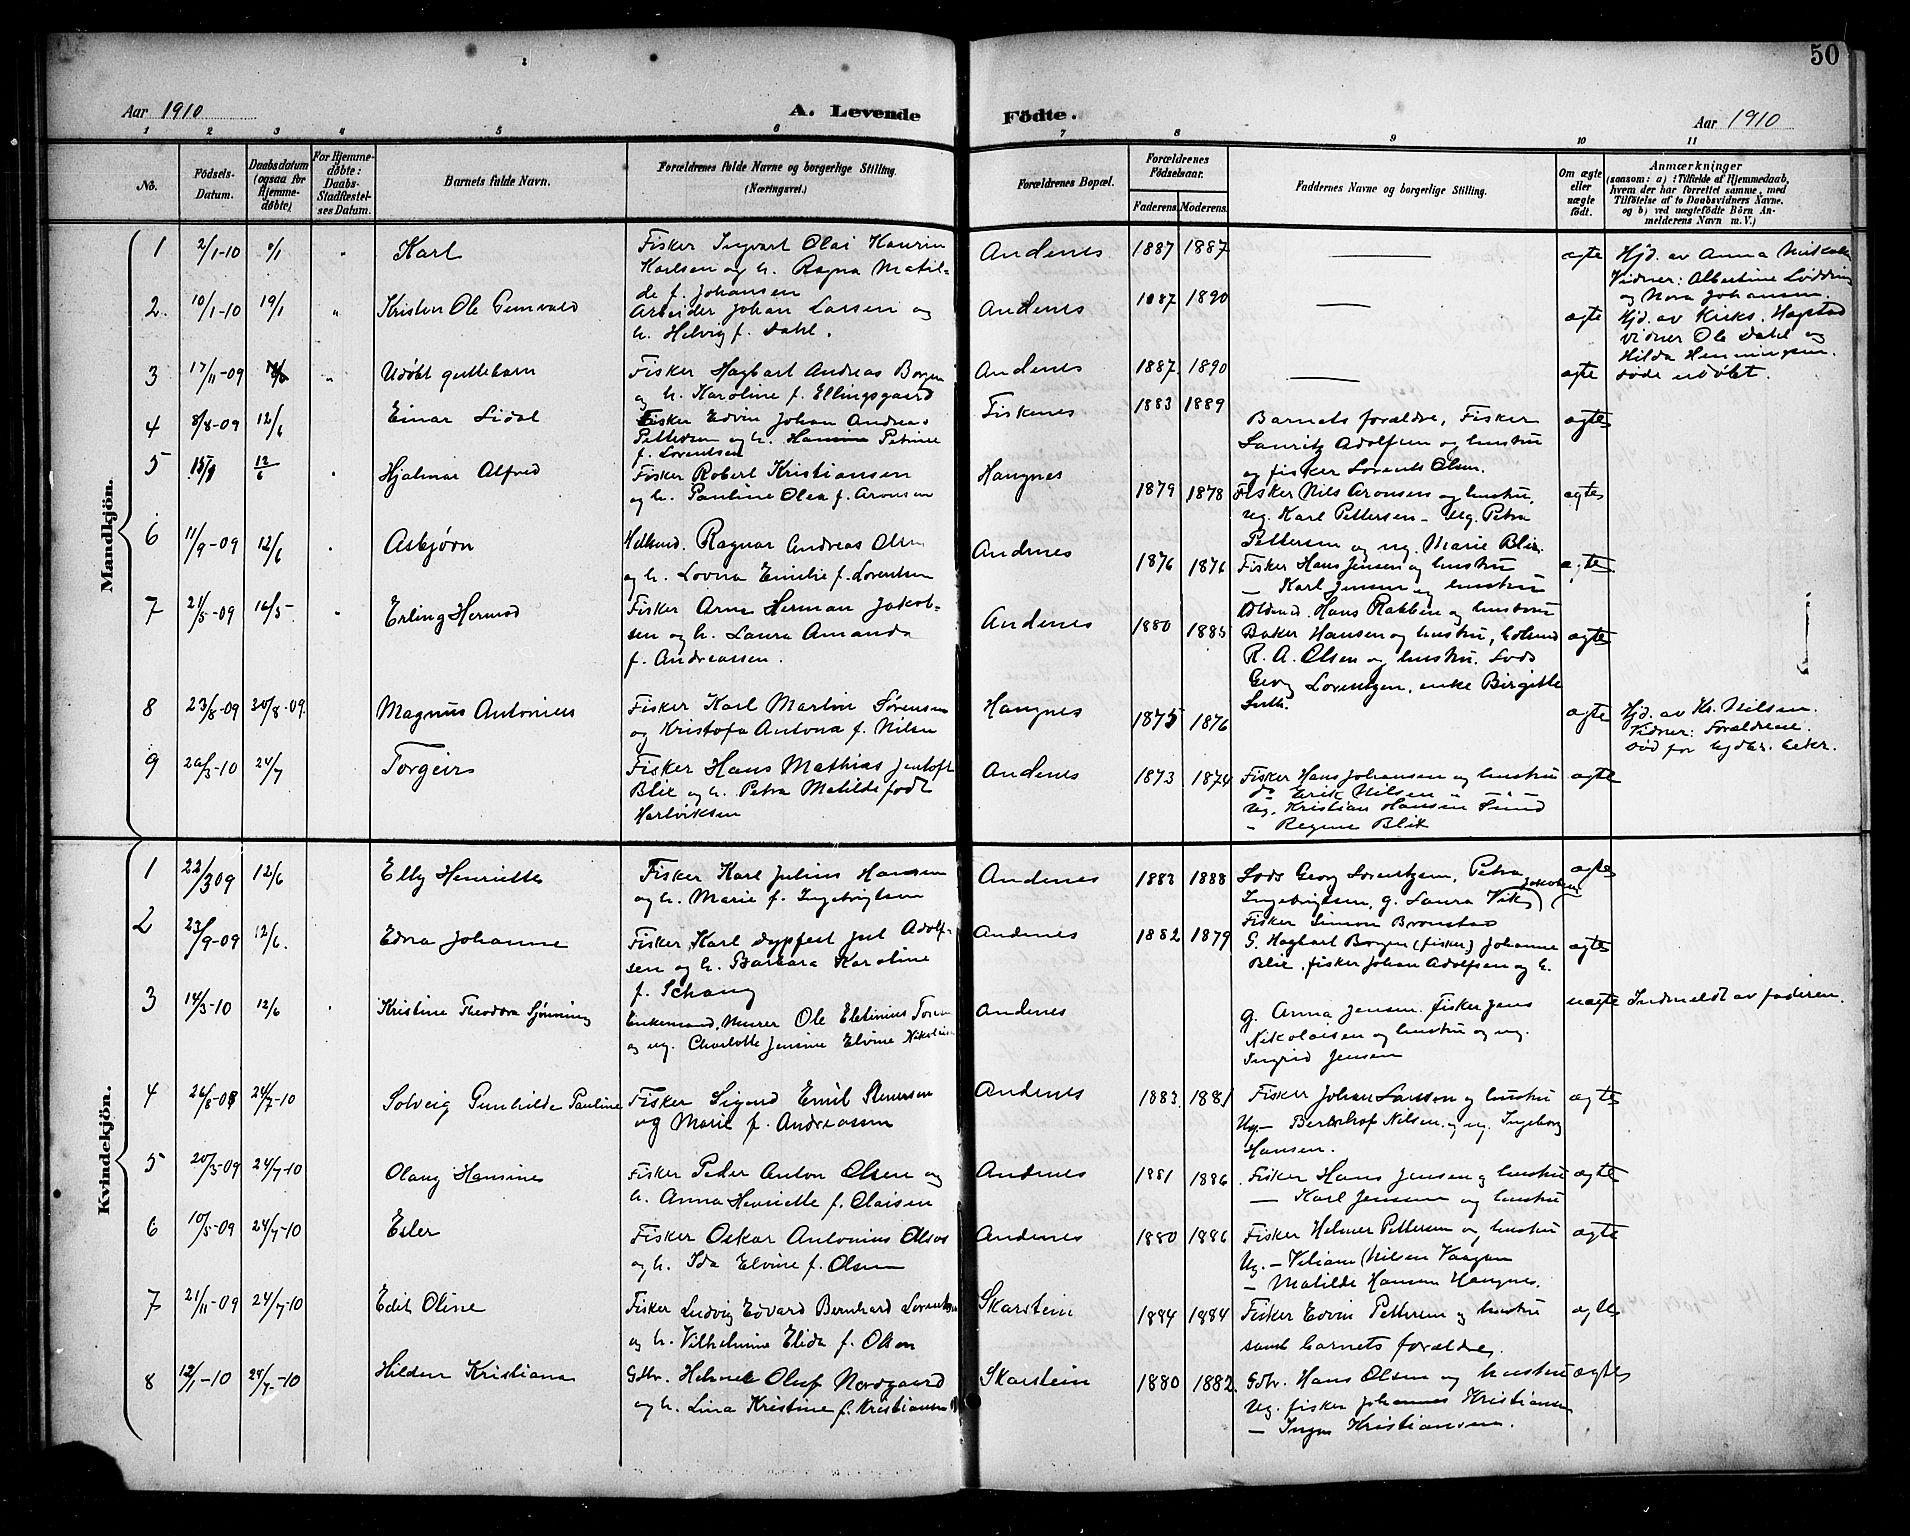 50
Aar 1910
A. Levende Födte.
Aar 1910
1 2 3 4 5 6 7 8 9 10 11
No.
Födsels-
Datum.
Daabsdatum
(ogsaa for
Hjemme-
døbte)
For Hjemme-
døbte:
Daabs-
Stadfæstel-
ses Datum.
Barnets fulde Navn.
Forældrenes fulde Navne og borgerlige Stilling.
(Næringsvei.)
Forældrenes Bopæl.
Forældrenes
Födselsaar.
Faderens. Moderens.
Faddernes Navne og borgerlige Stilling.
Om ægte
eller
uægte
født.
Anmærkninger
(saasom: a) i Tilfælde af Hjemmedaab,
hvem der har forrettet samme, med
Tilföielse af to Daabsvidners Navne,
og b) ved uægtefödte Börn An-
melderens Navn m. V.)
Mandkjön.
1 2/1-10 Karl
Fisker Ingvart Olai Hanrin
Karlsen og h. Ragna Matil-
de f. Johansen
Andenes 1887 1887 ægte
Hjd. av Anna
Vidner: Albertine
og Nora Johansen.
2 10/1-10 19/1 Kristen Ole Gunvald
Arbeider Johan Larsen og
h. Helvig f. Dahl.
Andenes 1887 1890 ægte
Hjd. av Kirks. Hagstad
vidner Ole Dahl og
Hilda Henningsen.
3 17/11-09 Udöbt guttebarn
Fisker Hagbart Andreas Borgen
og h. Karoline f. Ellingsgaard
Andenes 1887. 1890 ægte
døde udøbt.
4 8/8-09 12/6 Einar Sidal
Fisker Edvin Johan Andreas
Pettersen og h. Hansine Petrine
f. Lorentsen
Fiskenes 1883 1889
Barnets forældre, Fisker
Lauritz Adolfsen og hustru
og fisker Lorents Olsen.
ægte
5 12/6 Hjalmar Alfred
Fisker Robert Kristiansen
og h. Pauline Olea f. Aronsen
Haugnes 1879 1878
Fisker Nils Aronsen og hustru,
Ug. Karl Pettersen - Ug. Petra
Pettersen og ug. Marie Blix.
ægte
6 11/9-09 12/6 Asbjørn
Ragnar Andreas Olsen
og h. Lovna Emilie f. Lorentsen
Andenes 1876 1876
Fisker Hans Jensen og hustru
— Karl Jensen og hustru
Hans Rabben og hustru
ægte
7 21/5-09 16/5- Erling Hermod
Fisker Arne Herman Jakob-
sen og h. Laura Amanda
f. Andreassen.
Andenes 1880 1885
Baker Hansen og hustru,
R. A. Olsen og hustru. Lods
Georg Lorentzen, enke Birgitte
ægte
8 23/8-09 30/8-09. Magnus Antonius
Fisker Karl Martin Sørensen
og Kristofa Antona f. Nilsen
Haugnes 1875 1876 ægte
Hjd. av Kr. Nilsen.
Vidner: Forældrene.
9 26/3-10 24/7 Torgeirs
Fisker Hans Mathias Jentoft
Blix og h. Petra Matilde født
Hartviksen
Andenes 1873 1874
Fisker Hans Johansen og hustru
do Erik Nilsen "
Ug. Kristian Hansen Sund
- Regine Blix
ægte
Kvindekjön.
1 22/3 09 12/6 Elly Henriette
Fisker Karl Julius Hansen
og h. Marie f. Ingebrigtsen
Andenes 1883 1888
Lods Georg Lorentzen, Petra
Ingebrigtsen, g. Laura Vik
Fisker Simon Bronstad
ægte
2 23/9-09 12/6. Edna Johanne
Fisker Karl Dypfest Jul Adolf-
sen og h. Barbara Karoline
f. Schang
Andenes 1882 1879
G. Hagbart Borgen (fisker) Johanne
Blix, fisker Johan Adolfsen og h.
ægte
3 14/3-10 12/6 Kristine Theodora Sjønning
Enkemand, Murer Ole Eletinius
og ug. Charlotte Jensine Elvine Nikolaisen
Andenes
g. Anna Jensen. Fisker Jens
Nikolaisen og hustru og ug.
Ingrid Jensen
uægte Indmeldt av faderen.
4 24/7-10 Solveig Gunhilde Pauline
Fisker Sigurd Emil
og Marie f. Andreassen
Andenes 1883. 1881
Fisker Johan Larsson og hustru
Ug.- Berthof Nilsen. og ug. Ingeborg
Hansen.
ægte
5 20/3-09 24/7-10 Olaug Hansine
Fisker Peder Anton Olsen og
h. Anna Henriette f. Olaisen
Andenes 1881 1886
Fisker Hans Jensen og hustru
— Karl Jensen og hustru
ægte
6 10/5-09 24/7-10 Ester
Fisker Oskar Antonius Olsen
og h. Ida Elvine f. Olsen
Andenes 1880 1886
Fisker Helmer Pettersen og hustru
Ug. - Viliam Nilsen Vaagan
— Matilde Hansen Haugnes.
ægte
7 21/11-09 24/7-10 Edit Oline
Fisker Ludvig Edvard Bernhard Lorentsen
og h. Vilhelmine Elida f. Olsen
Skarstein 1884 1884
Fisker Edvin Pettersen og hustru
samt barnets forældre.
ægte
8 12/1-10 24/7-10 Hildur Kristiane
Gdbr. Helmer Oluf Nordgaard
og h. Lina Kristine f. Kristiansen
Skarstein 1880 1882.
Gdbr. Hans Olsen og hustru
Ug. fisker Johannes Kristiansen
— Inga Kristiansen.
ægte